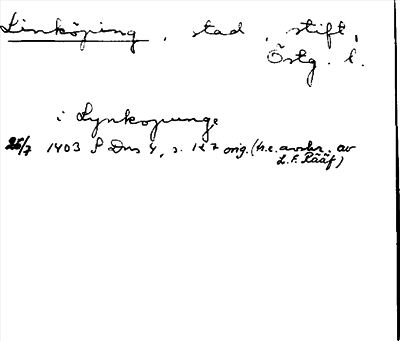 Linköping, stad, stift,
Östg. l.
i Lynkopunge
25/7 1403 SDns 4, s. 127 orig. (h.e. avskr. av
L.F. Rääf)